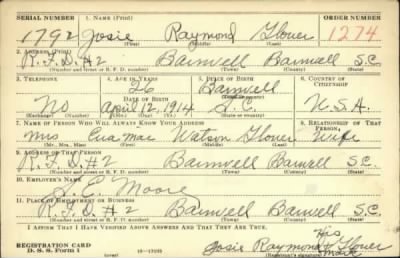 SERIAL NUMBER 1. NAME (Print) ORDER NUMBER
1792 Josie Raymond Glover 1274
(First) (Middle) (Last)
2. ADDRESS (Print)
R.F.D. #2 Barnwell Barnwell S.C.
(Number and street or R. F. D. number) (Town) (County) (State)
3. TELEPHONE 4. AGE IN YEARS 5. PLACE OF BIRTH 6. COUNTRY OF CITIZENSHIP
26 Barnwell
DATE OF BIRTH
No April 12, 1914 S.C. U.S.A.
7. NAME OF PERSON WHO WILL ALWAYS KNOW YOUR ADDRESS 8. RELATIONSHIP OF THAT PERSON
Mrs Eva Mae Watson Glover Wife
(Mr., Mrs., Miss) (First) (Middle) (Last)
9. ADDRESS OF THAT PERSON
R.F.D. #2 Barnwell Barnwell S.C.
(Number and street or R. F. D. number) (Town) (County) (State)
10. EMPLOYER'S NAME
E. Moore
11. PLACE OF EMPLOYMENT OR BUSINESS
R.F.D. #2 Barnwell Barnwell S.C.
(Number and street or R. F. D. number) (Town) (County) (State)
I AFFIRM THAT I HAVE VERIFIED ABOVE ANSWERS AND THAT THEY ARE TRUE.
His
REGISTRATION CARD Josie Raymond x Glover
D. S. S. Form 1 (Registrant's signature) Mark